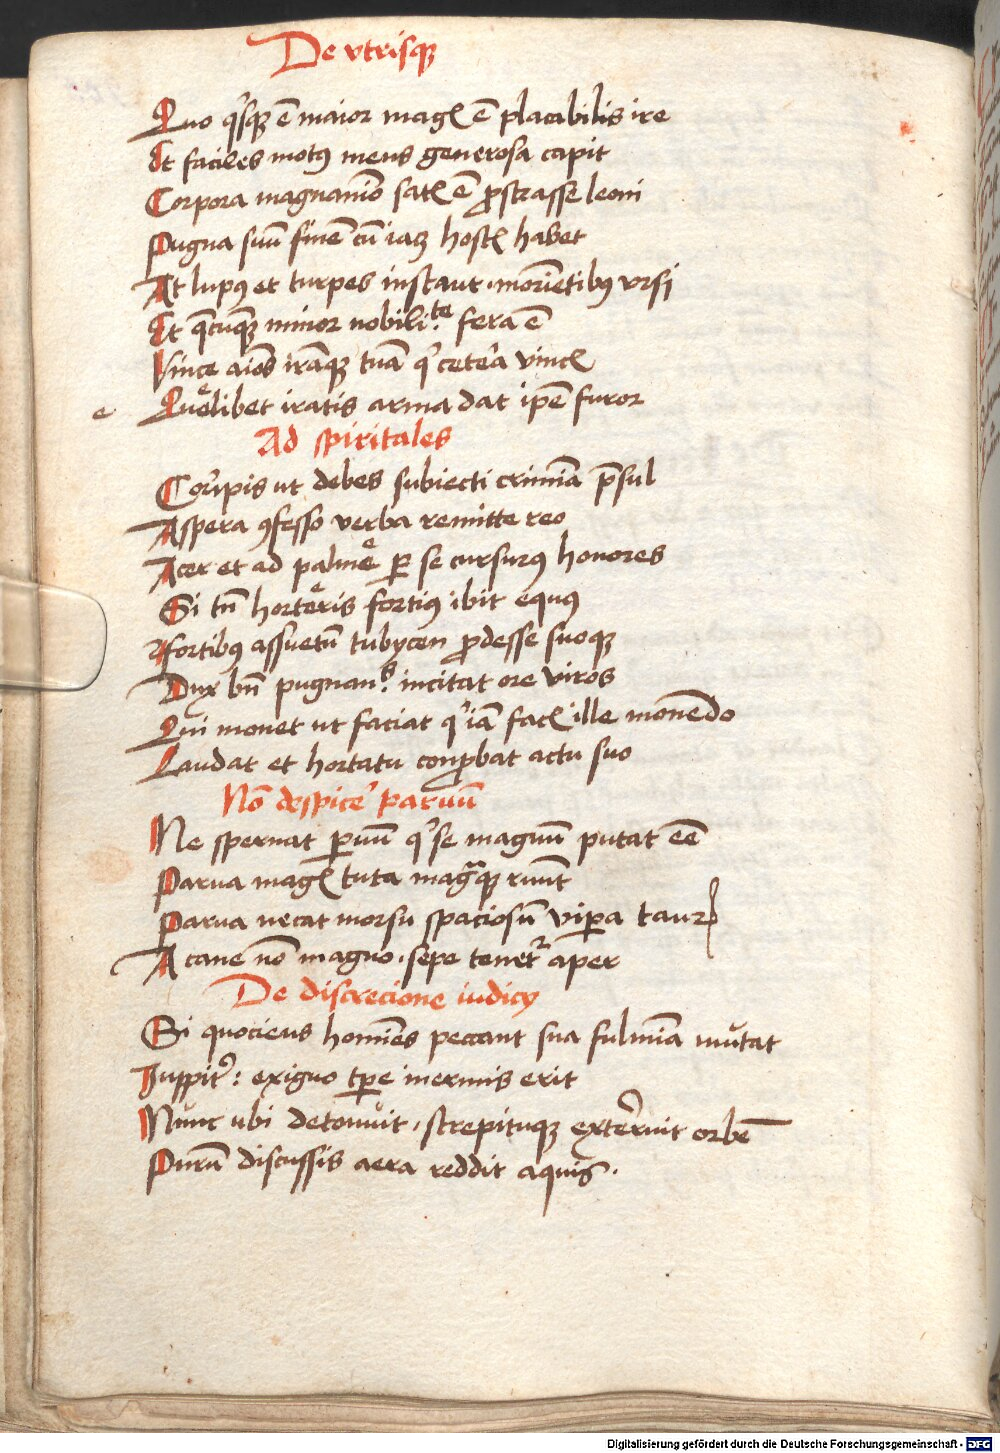 De vtrisqꝫ
Quo qͥsqꝫ ē maior magꝭ ē placabilis ire
Et faciles motꝰ mens generosa capit
Corpora magnanīo satꝭ ē ꝓstrasse leoni
Pugna suū finē cū iaꝫ hostꝭ habet
At lupꝰ et turpes instant moriētibꝰ vrsi
Et q̄cūqꝫ minor nobili.te fera ē
Vince aīos irāqꝫ tuā qͥ cetera vincꝭ
Quēlibet iratis arma dat ip̄e furor
Ad spiritales
Corripis ut debes subiecti crimīa p̄sul
Aspera ꝯfesso verba remitte reo
Acer et ad palme ꝑ se cursurꝰ honores
Si tn̄ horteris fortiꝰ ibit equꝰ
Fortibꝰ assuetū tubycen ꝓdesse suoqꝫ
Dux bn̄ pugnan.s incitat ore viros
Qui monet ut faciat qͦ iā facꝭ ille monēdo
Laudat et hortatu conꝓbat actu suo
Nō despicẽ paruū
Ne spernat ꝑuū qͥ se magnū putat eē
Parua magꝭ tuta magͣqꝫ ruūt
Parua necat morsu spaciosū viꝑa taurꝭ
A cane nō magno sepe tenetᷣ aper
De discrecione iudicÿ
Si quociens homīes peccant sua fulmīa mutat
Iuppitꝰ: exiguo tꝑe inermis erit
Nunc ubi detonuit, strepituqꝫ exterruit orbē
Purū discussis aera reddit aquis.
Digitalisierung gefördert durch die Deutsche Forschungsgemeinschaft - DFG